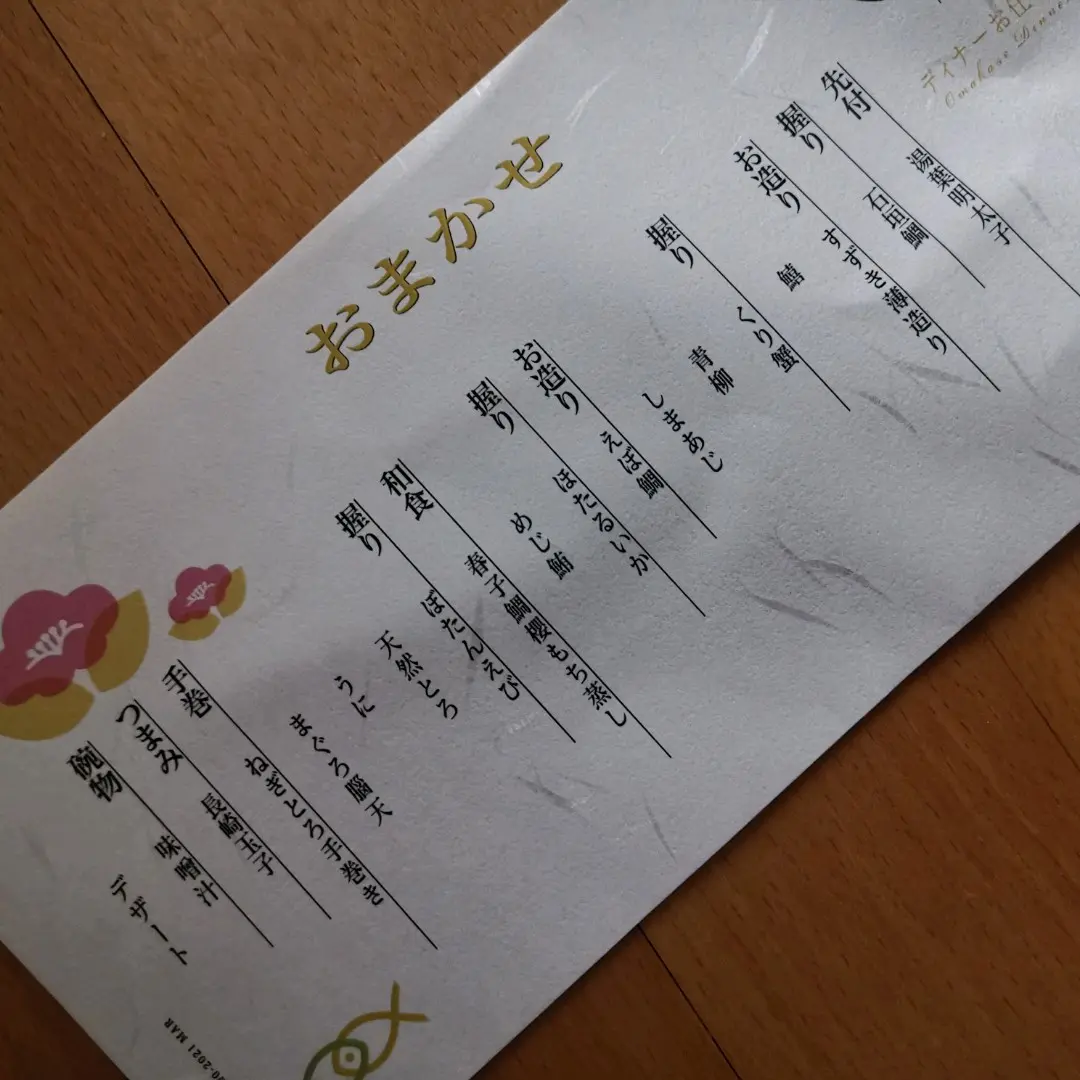 ディナーお
Omakase Dinner
先付
湯葉明太子
握り
石垣鯛
お造り
すずき薄造り
鱚
握り
くり蟹
青柳
しまあじ
お造り
えぼ鯛
握り
ほたるいか
めじ鮪
和食
春子鯛櫻もち蒸し
握り
ぼたんえび
天然とろ
うに
まぐろ腦天
手巻
ねぎとろ手巻き
つまみ
長崎玉子
碗物
味噌汁
デザート
おまかせ
0-2021 MAR